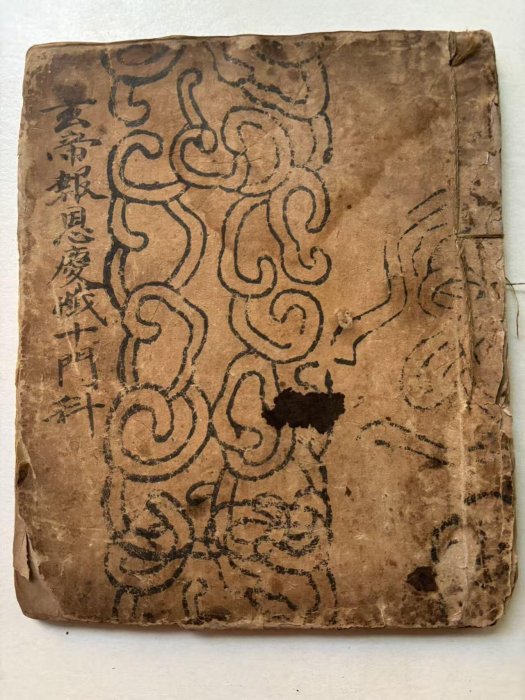 玄帝報恩慶殿十門科